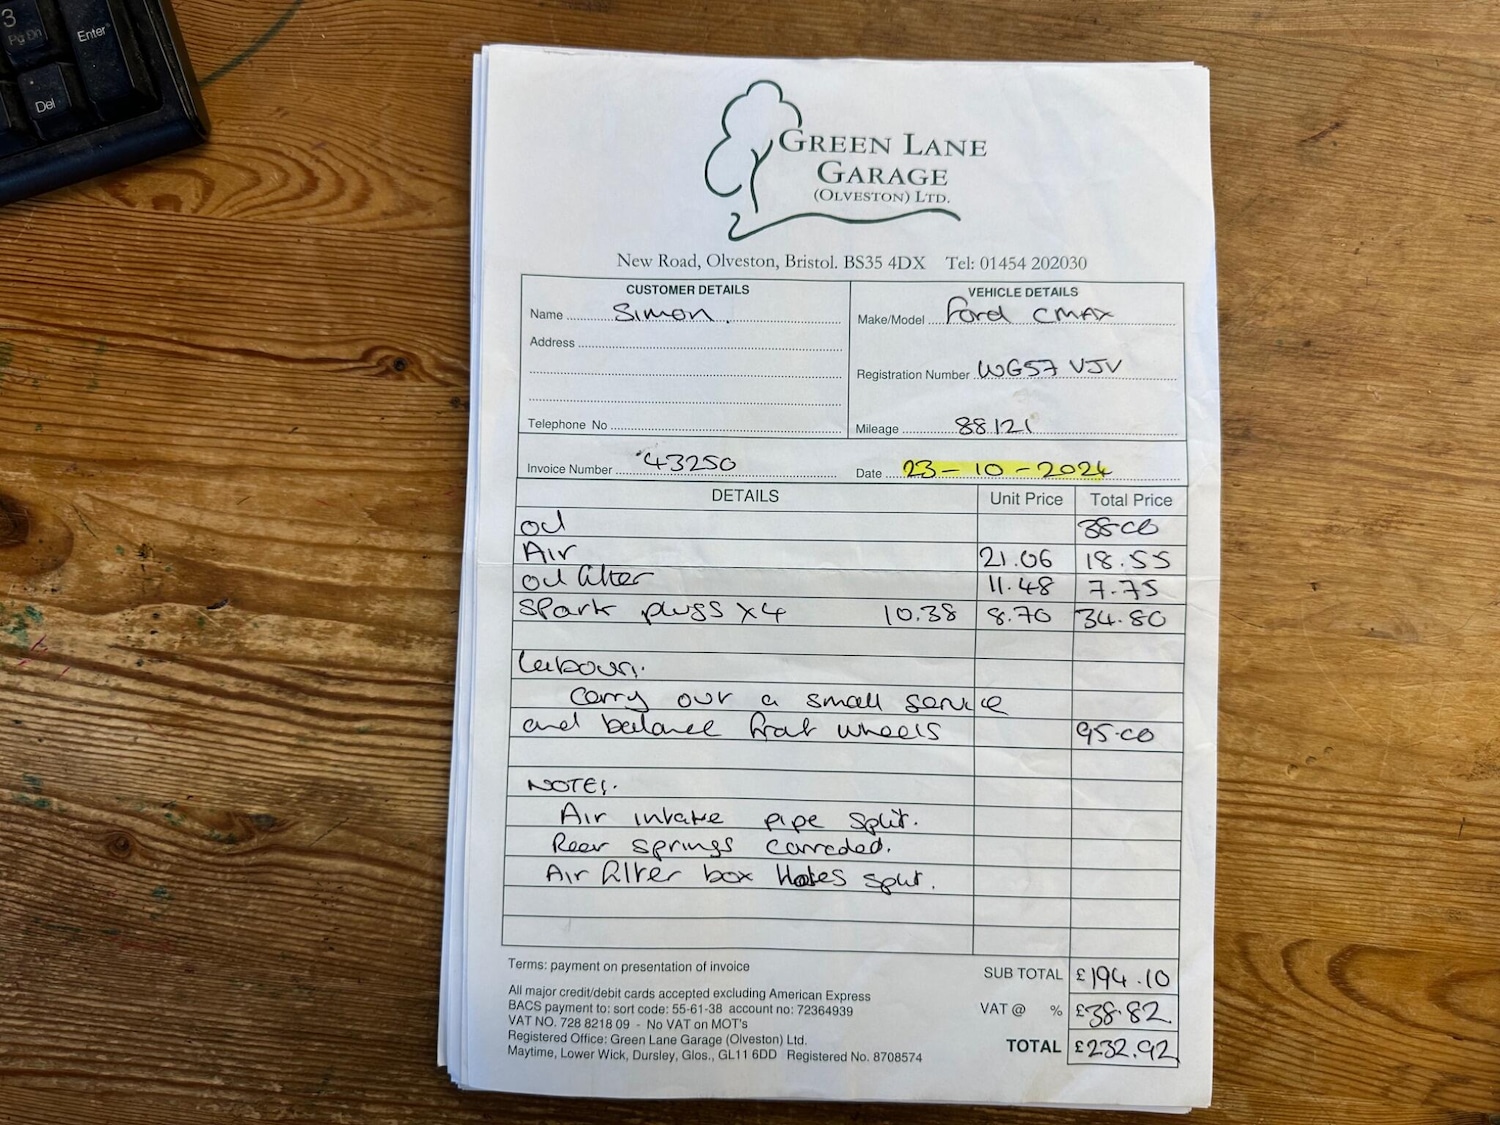 3
Pg Dn
Enter
Del
GREEN LANE
GARAGE
(OLVESTON) LTD.
New Road, Olveston, Bristol. BS35 4DX Tel: 01454 202030
CUSTOMER DETAILS
Name Simon.
Address
Telephone No
VEHICLE DETAILS
Make/Model Ford CMAX
Registration Number WG57 VJV
Mileage 88121
Invoice Number 43250
Date 23-10-2024
DETAILS Unit Price Total Price
oil 38.00
Air 21.06 18.55
oil filter 11.48 7.75
Spark plugs x4 10.38 8.70 34.80
Labour:
Carry out a small service
and balance front wheels 95.00
NOTE:
Air intake pipe split.
Rear springs corroded.
Air filter box split.
Terms: payment on presentation of invoice
SUB TOTAL £194.10
All major credit/debit cards accepted excluding American Express
BACS payment to: sort code: 55-61-38 account no: 72364939
VAT @ % £38.82
VAT NO. 728 8218 09 - No VAT on MOT's
Registered Office: Green Lane Garage (Olveston) Ltd.
Maytime, Lower Wick, Dursley, Glos., GL11 6DD Registered No. 8708574
TOTAL £232.92